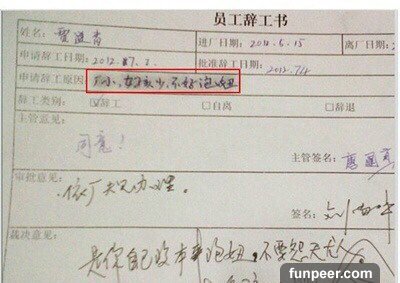 员工辞工书
姓名: 进厂日期: 2012.6.15 离厂日期: 2
申请辞工日期: 2012.07.2. 批准辞工日期: 2012.7/4
申请辞工原因: 厂小,女孩少,不好泡妞
辞工类别: ☑辞工 □自离 □辞退
主管意见:
同意!
主管签名:
审批意见:
依厂规办理。
签名: 刘
裁决意见:
是你自己没本事泡妞,不要怨天尤人。
funpeer.com